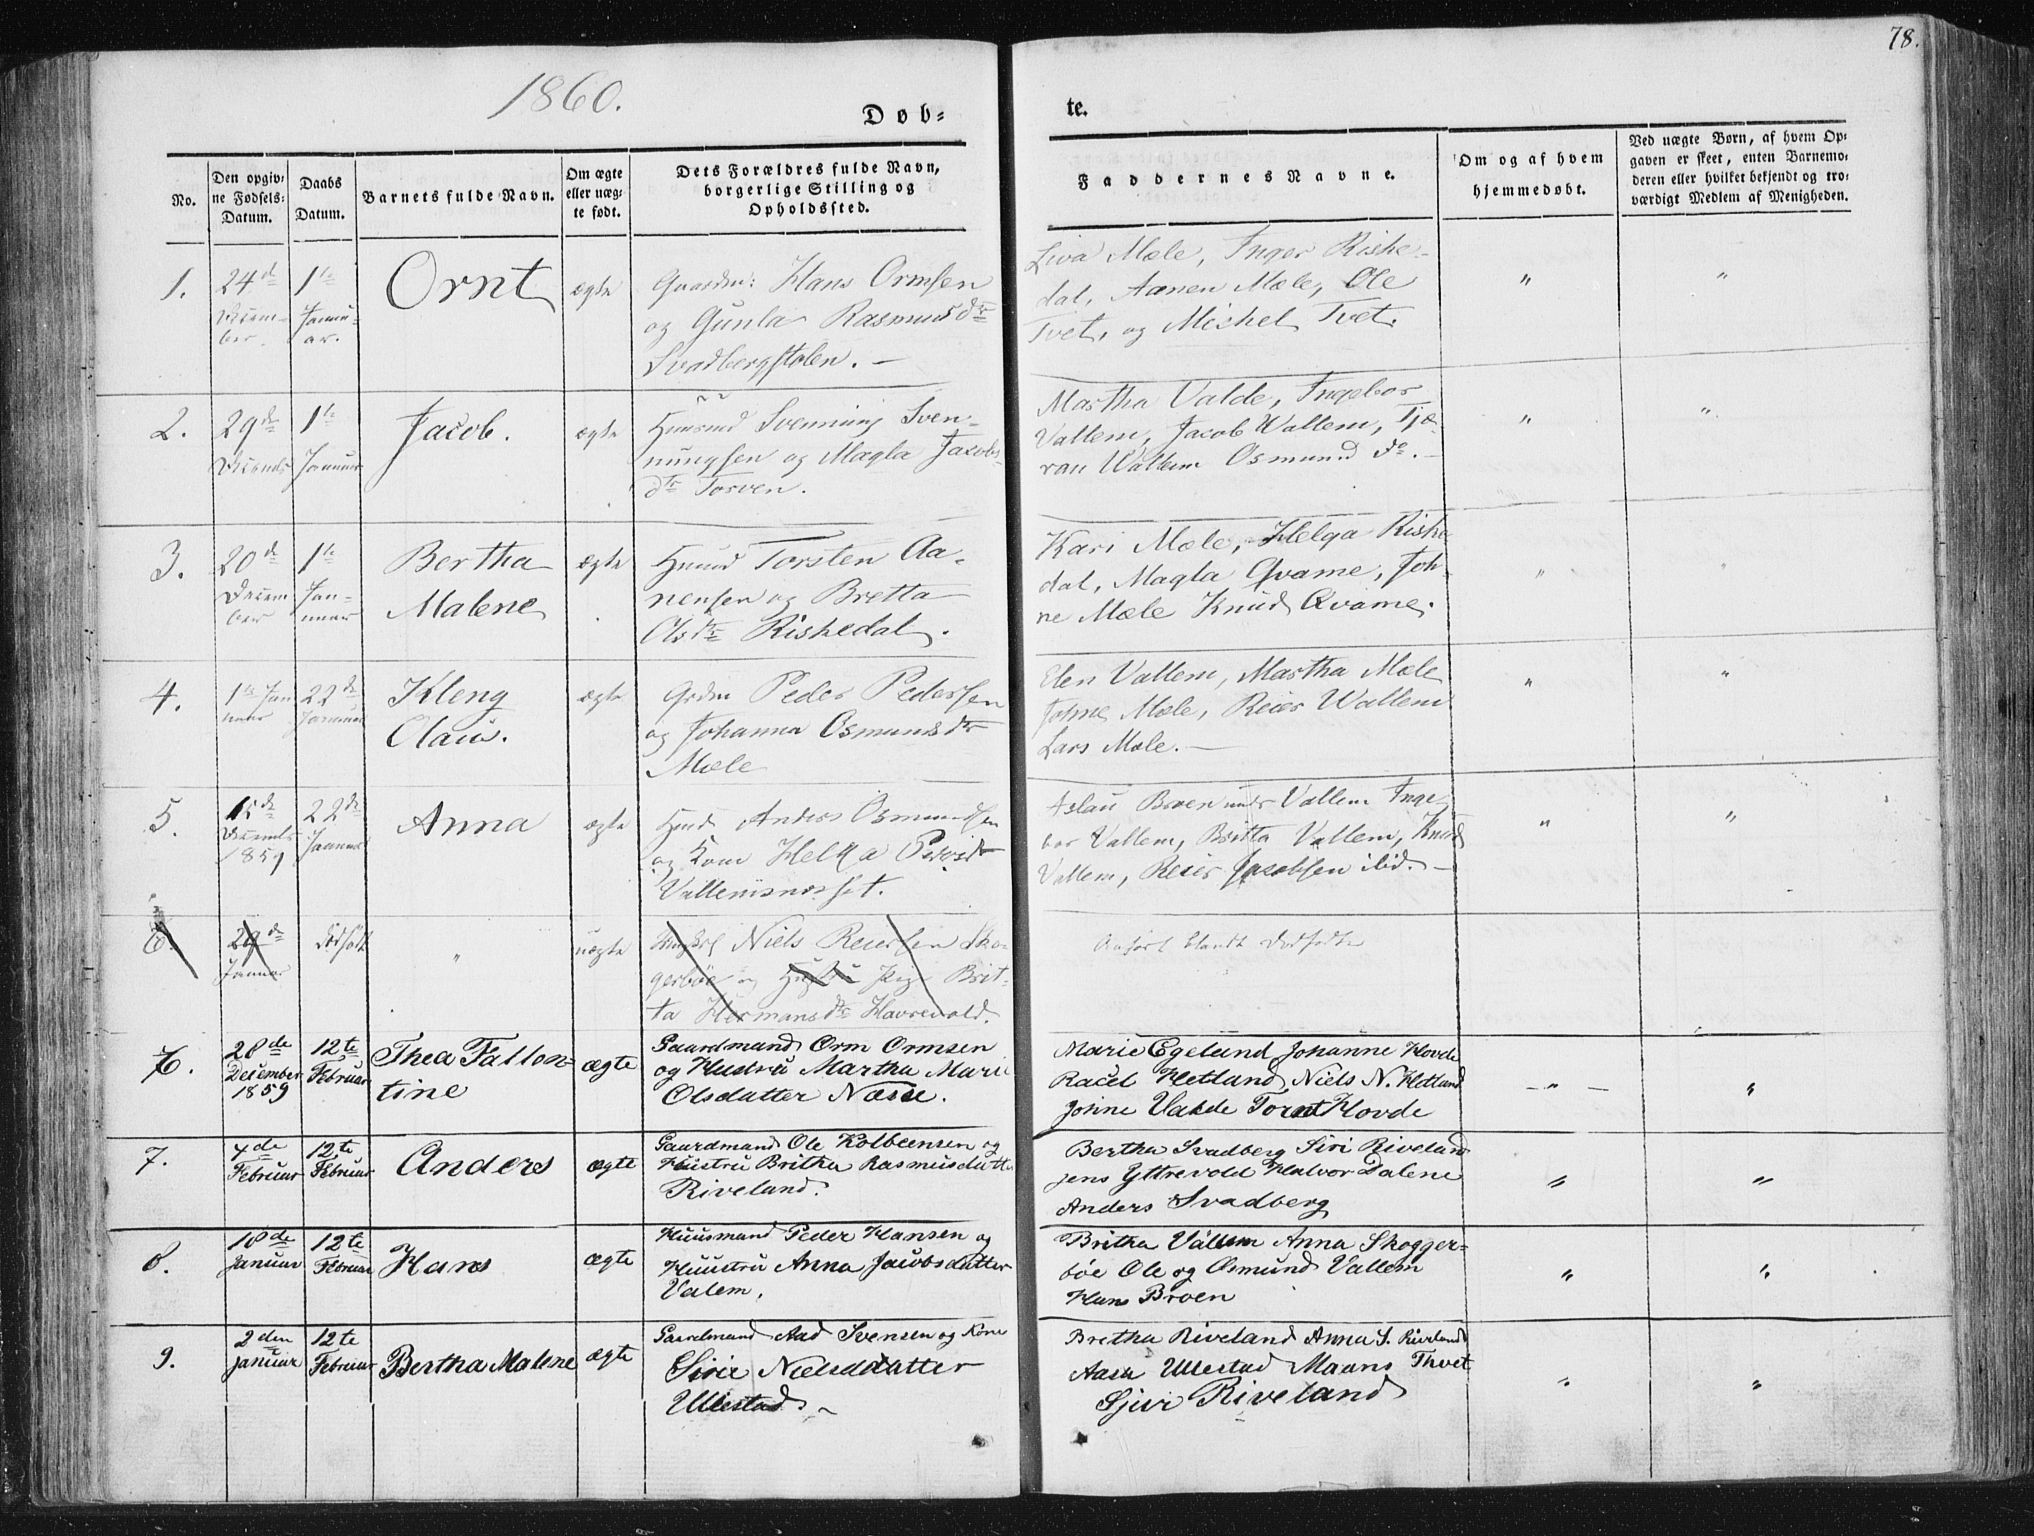 78.
1860.
Døb-
te.
No.
Den opgiv-
ne Fødsels-
Datum.
Daabs
Datum.
Barnets fulde Navn.
Om ægte
eller uæg-
te født.
Dets Forældres fulde Navn,
borgerlige Stilling og
Opholdssted.
Faddernes Navne.
Om og af hvem
hjemmedøbt.
Ved uægte Børn, af hvem Op-
gaven er skeet, enten Barnemo-
deren eller hvilket bekjendt og tro-
værdigt Medlem af Menigheden.
1.
24de
Decem-
ber.
1te
Janu-
ar.
Ornt
ægte
Gaardm: Hans Ormsen
og Gunla Rasmusdtr
Svadbergstølen. -
Liva Mæle, Inger Riske-
dal, Aanen Mæle, Ole
Tvet, og Michel Tvet.
"
"
2.
29de
1te
Januar
Jacob.
ægte
Huusmd Svenning Sven-
nungsen og Magla Jacobs-
dtr Torven.
Martha Valde, Ingebor
Vallem, Jacob Wallem, Tjæ-
ran Wallem Osmund do. -
"
"
3.
20de
Decem
ber
1te
Jan-
uar
Bertha
Malene
ægte
Huusmd Torsten Aa-
nensen og Bretta
Olsdtr Riskedal.
Kari Mæle, Helga Riske
dal, Magla Qvame, Joh-
ne Mæle Knud Qvame.
"
"
4.
1te Jan
uar
22de
Januar
Kleng
Olaus.
ægte
Grdm Peder Pedersen
og Johanna Osmundsdtr
Mæle
Elen Vallem, Martha Mæle
Johne Mæle, Reier Wallem
Lars Mæle. -
"
"
5.
15de
Decemb
1859
22de
Januar
Anna
ægte
Husmd Anders Osmundsen
og Kone Helga Pedersdtr
Vallemsnæsset.
Aslau Broen under Vallem Inge-
bor Vallem, Britta Vallem, Knud
Vallem, Reier Jacobsen ibid. -
"
"
6.
29de
Januar
Dødfødt
"
uægte
Ungkarl Niels Reiersen Sko-
gerbøe og Hustru Pige Brit-
ta Hermansdtr Havrevold.
Anført blandt Dødfødte
6.
28de
December
1859
12te
Februar
Thea Tallon-
tine
ægte
Gaardmand Orm Ormsen
og Hustru Martha Marie
Olsdatter Næsse.
Marie Egeland Johanne Hovde
Racel Hetland, Niels N. Hetland
Josine Valde Tornt Hovde
- " -
"
7.
4de
Februar
12te
Februar
Anders
ægte
Gaardmand Ole Kolbeensen og
Hustru Britha Rasmusdatter
Riveland.
Bertha Svadberg Siri Riveland
Jens Yttrevold Halvor Dalene
Anders Svadberg
"
"
8.
18de
Januar
12te
Februar
Hans
ægte
Huusmand Peder Hansen og
Huustru Anna Jacobsdatter
Valem.
Britha Vallem Anna Skogger-
bøe Ole og Osmund Vallem
Hans Broen
"
"
9.
2den
Januar
12te
Februar
Bertha Malene
ægte
Gaardmand Aad Svensen og Kone
Sirie Nielsdatter
Ullestad. -
Bretha Riveland Anna S. Riveland
Aasa Ullestad Maans Thvet
Sjur Riveland
"
"